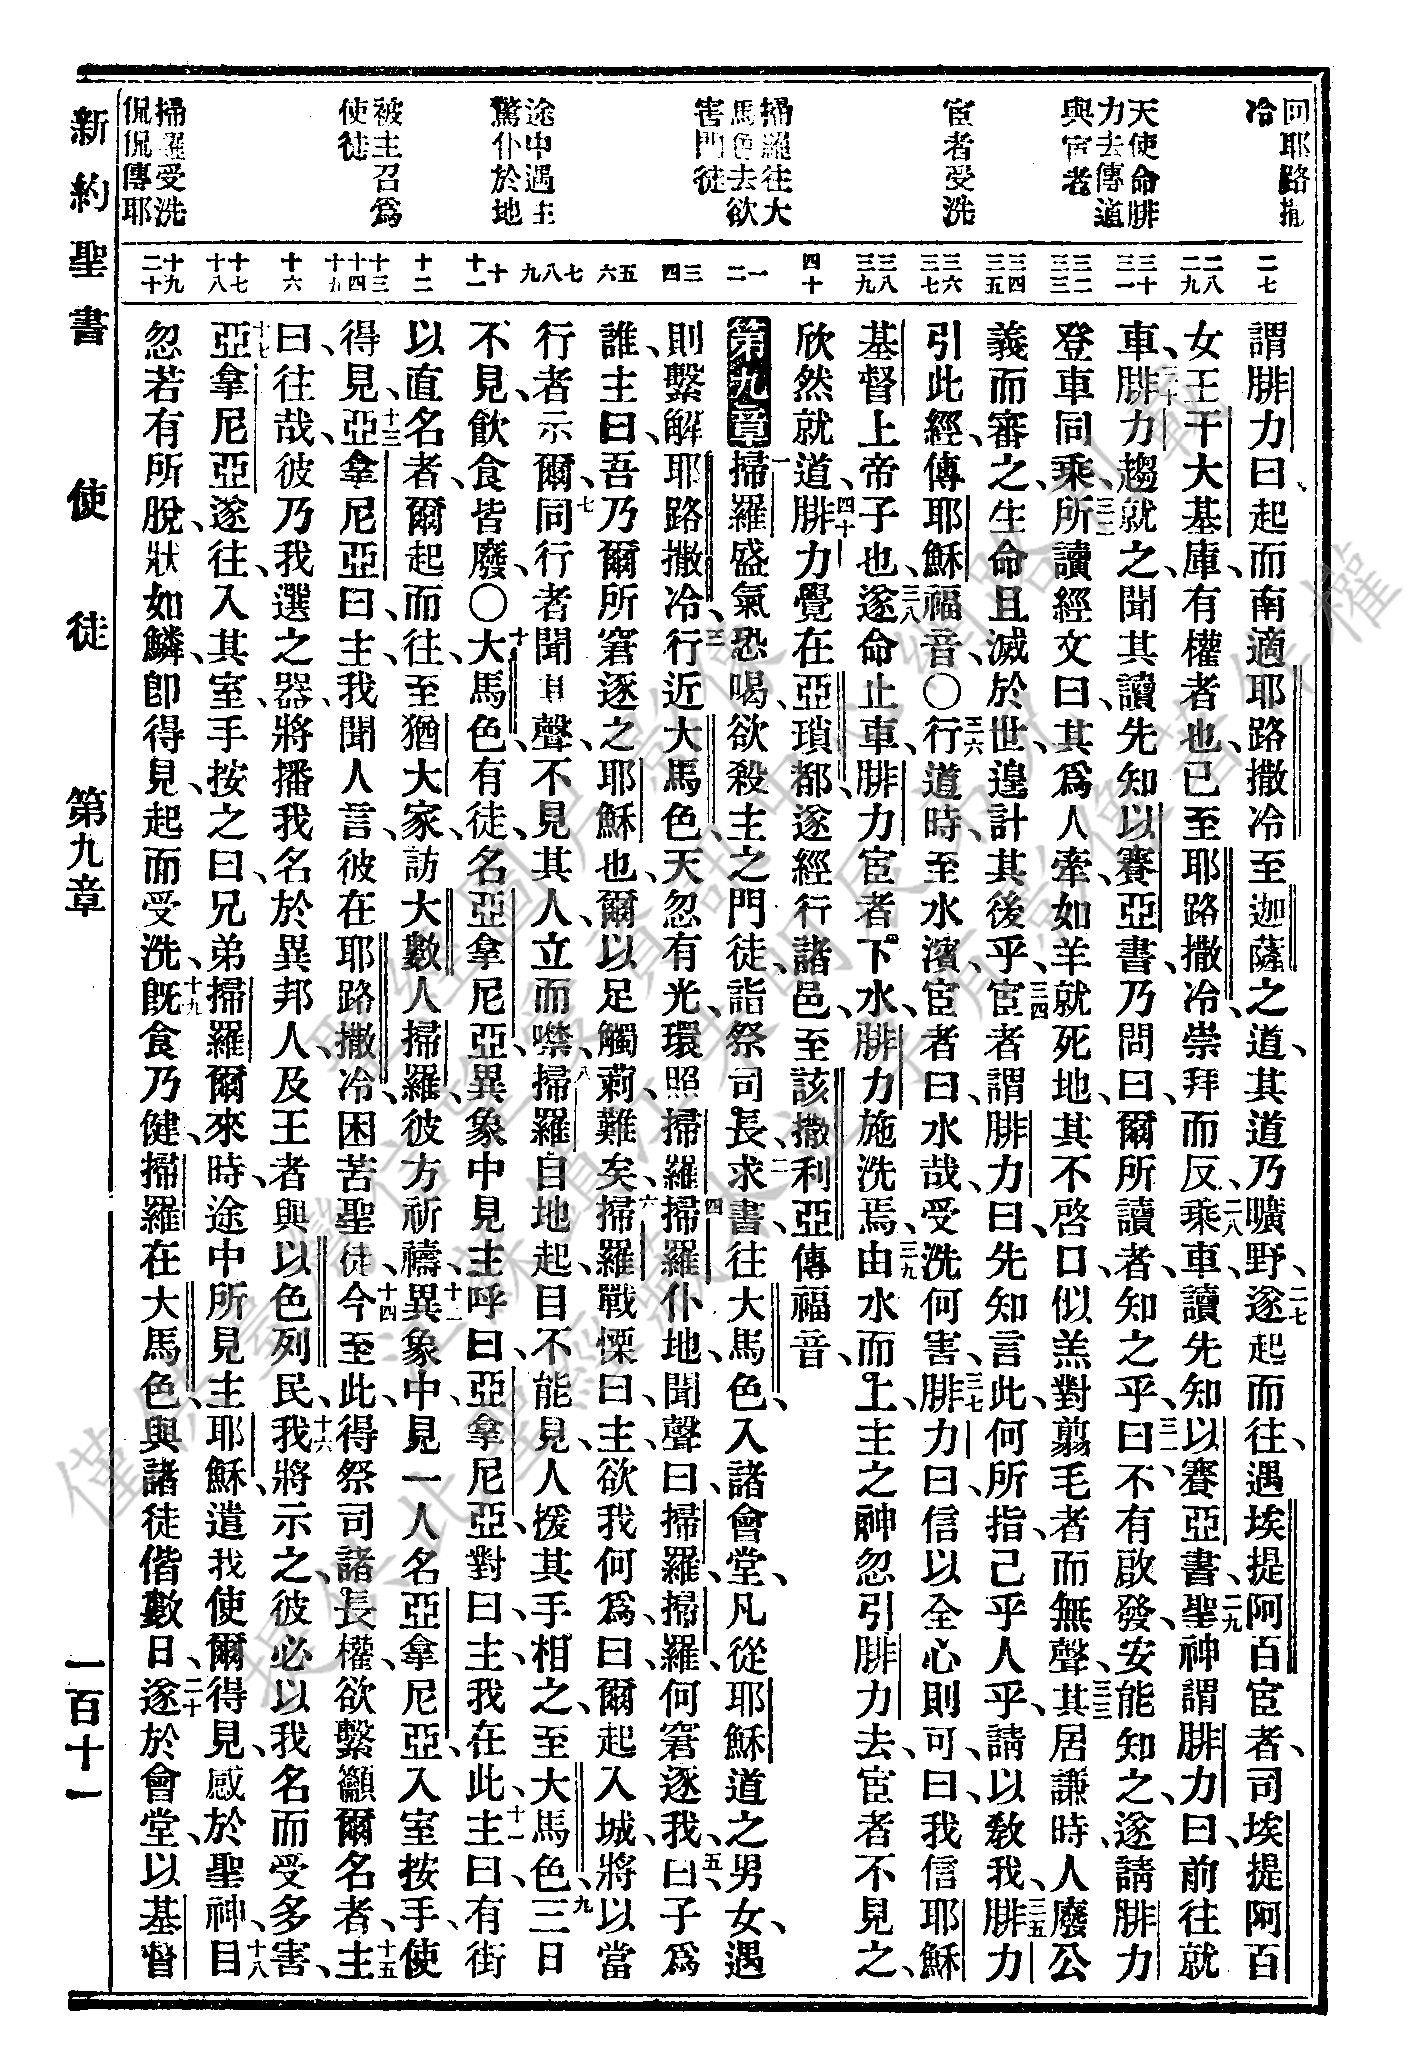 回耶路撒
冷
天使命腓
力去傳道
與宦者
宦者受洗
掃羅往大
馬色去欲
害門徒
途中遇主
驚仆於地
被主召爲
使徒
掃羅受洗
侃侃傳耶
二七
二八
二九
三十
三一
三二
三三
三四
三五
三六
三七
三八
三九
四十
一
二
三
四
五
六
七
八
九
十
十一
十二
十三
十四
十五
十六
十七
十八
十九
二十
謂腓力曰、起而南適耶路撒冷至迦薩之道、其道乃曠野、二七遂起而往、遇埃提阿百宦者、司埃提阿百
女王干大基庫、有權者也、已至耶路撒冷、崇拜而反、二八乘車、讀先知以賽亞書、二九聖神謂腓力曰、前往就
車、三十腓力趨就之、聞其讀先知以賽亞書、乃問曰、爾所讀者、知之乎、三一曰、不有啟發、安能知之、遂請腓力
登車同乘、三二所讀經文曰、其爲人牽、如羊就死地、其不啓口、似羔對翦毛者而無聲、三三其居謙時、人廢公
義而審之、生命且滅於世、遑計其後乎、三四宦者謂腓力曰、先知言此、何所指、己乎人乎、請以敎我、三五腓力
引此經、傳耶穌福音、〇三六行道時、至水濱、宦者曰、水哉、受洗何害、三七腓力曰、信以全心則可、曰、我信耶穌
基督上帝子也、三八遂命止車、腓力宦者下水、腓力施洗焉、三九由水而上、主之神忽引腓力去、宦者不見之、
欣然就道、四十腓力覺在亞瑣都、遂經行諸邑、至該撒利亞傳福音、
第九章一掃羅盛氣恐喝、欲殺主之門徒、詣祭司長、二求書、往大馬色、入諸會堂、凡從耶穌道之男女、遇
則繫解耶路撒冷、三行近大馬色、天忽有光、環照掃羅、四掃羅仆地、聞聲曰、掃羅、掃羅、何窘逐我、五曰、子爲
誰、主曰、吾乃爾所窘逐之耶穌也、爾以足觸莿難矣、六掃羅戰慄曰、主、欲我何爲、曰、爾起入城、將以當
行者示爾、七同行者聞其聲、不見其人、立而噤、八掃羅自地起、目不能見、人援其手相之、至大馬色、九三日
不見、飲食皆廢、〇十大馬色、有徒、名亞拿尼亞、異象中見主呼曰、亞拿尼亞、對曰、主、我在此、十一主曰、有街
以直名者、爾起而往、至猶大家、訪大數人掃羅、彼方祈禱、十二異象中、見一人名亞拿尼亞、入室按手、使
得見、十三亞拿尼亞曰、主、我聞人言、彼在耶路撒冷、困苦聖徒、十四今至此、得祭司諸長權、欲繫籲爾名者、十五主
曰、往哉、彼乃我選之器、將播我名於異邦人、及王者與以色列民、十六我將示之、彼必以我名而受多害、
十七亞拿尼亞遂往、入其室、手按之曰、兄弟掃羅、爾來時、途中所見主耶穌、遣我使爾得見、感於聖神、十八目
忽若有所脫、狀如鱗、卽得見、起而受洗、十九旣食乃健、掃羅在大馬色、與諸徒偕數日、二十遂於會堂、以基督
新約聖書 使徒 第九章 一百十一